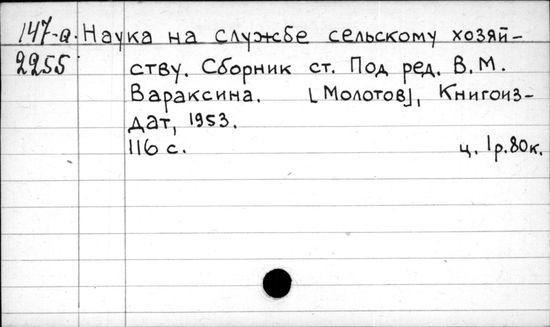 147-а. Наука на службе сельскому хозяй-
2255 ству. Сборник ст. Под ред. В. М.
Вараксина. [Молотов], Книгоиз-
дат, 1953.
116 с. ц. 1р.80к.